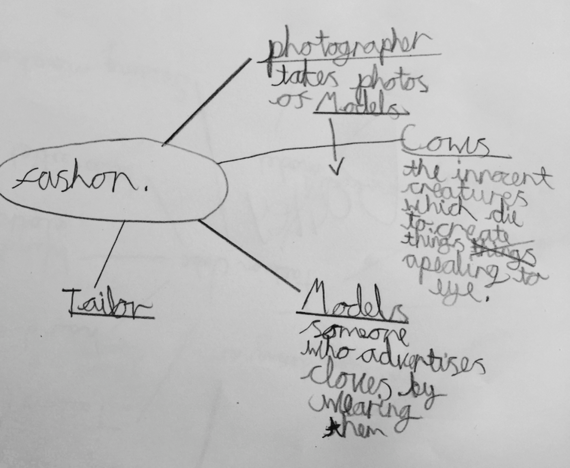 photographer
takes photos
of Models
Cows
the innocent
creatures
which die
to create
things things
apealing to
eye.
fashon.
Tailor
Models
someone
who advertises
cloves by
wearing
them